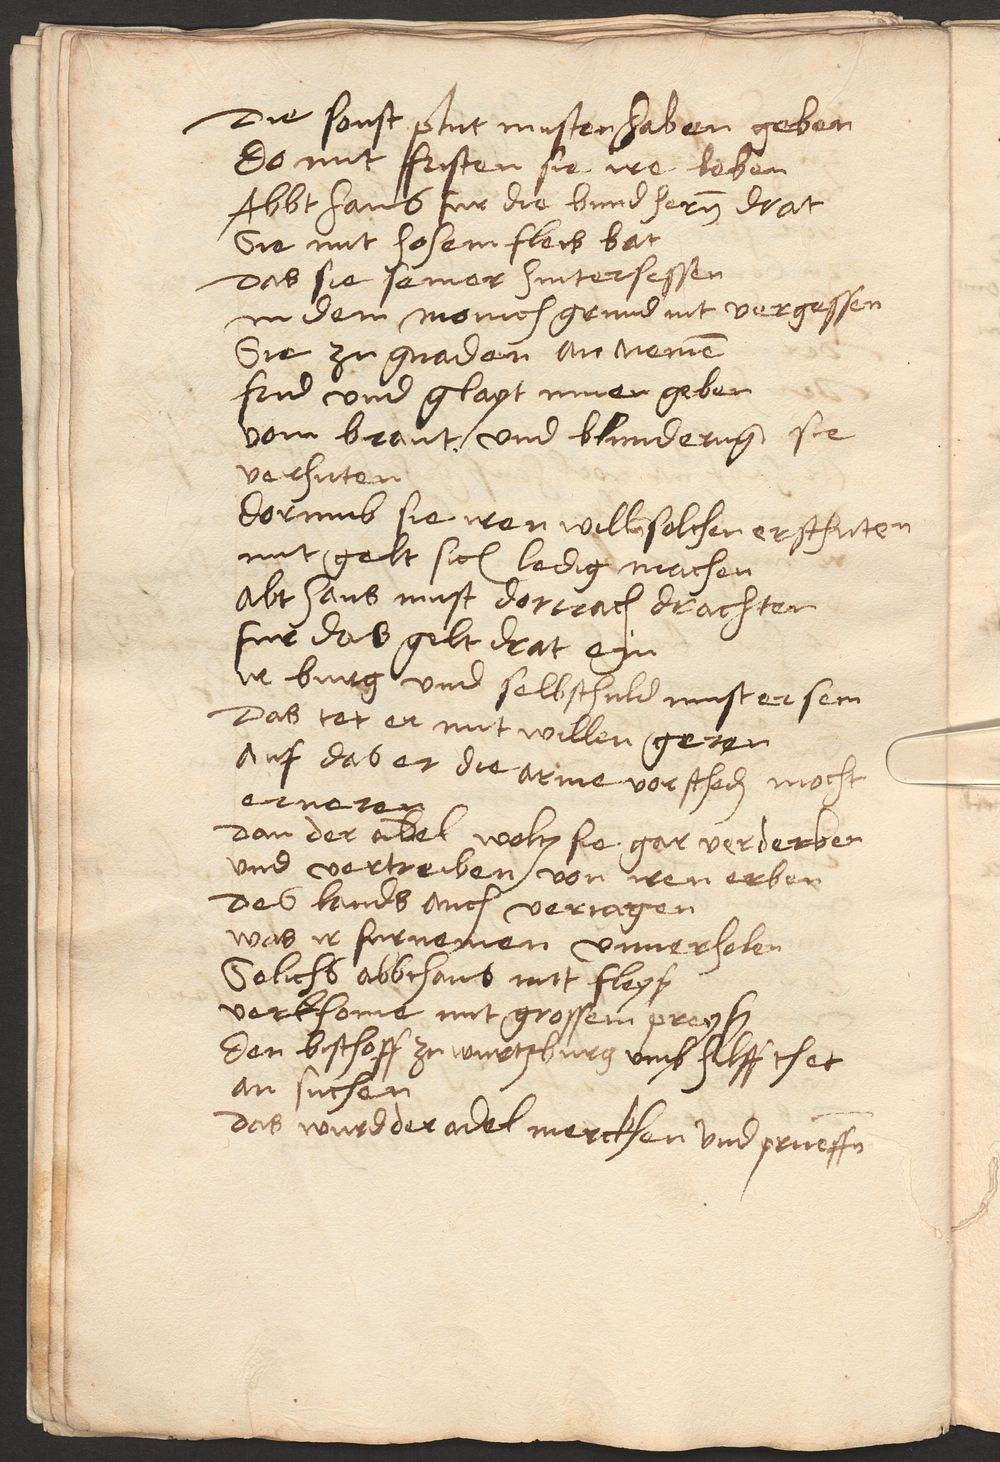 Die sonst plut musten haben geben
Do mit fristen sie ire leben
Abbt hans fur die bundhern drat
Sie mit hohem fleis bat
Das sie seiner hintersessen
in dem monich grund nit vergessen
Sie zu gnaden an nemen
frid und glayt inen geben
vom brant und blunderung sie
verhuten
dorumb sie iren willen solchen erschuten
mit gelt sich ledig machen
Abt hans must dornach drachten
fur das gelt drat ein
ir burg und selbschuld must er sein
Das tet er mit willen geren
Auf das er die arme vor sched mocht
erneren
dan der adel wolt sie gar verderben
und vertreiben von iren erben
Des lands auch veriagen
was ir furnemen unverholen
Solichs abbt hans mit fleys
verkhome mit grossem preys
den bischoff zu wurtzburg umb hilff thet
an suchen
Das wurd der adel merckhen und prueffen